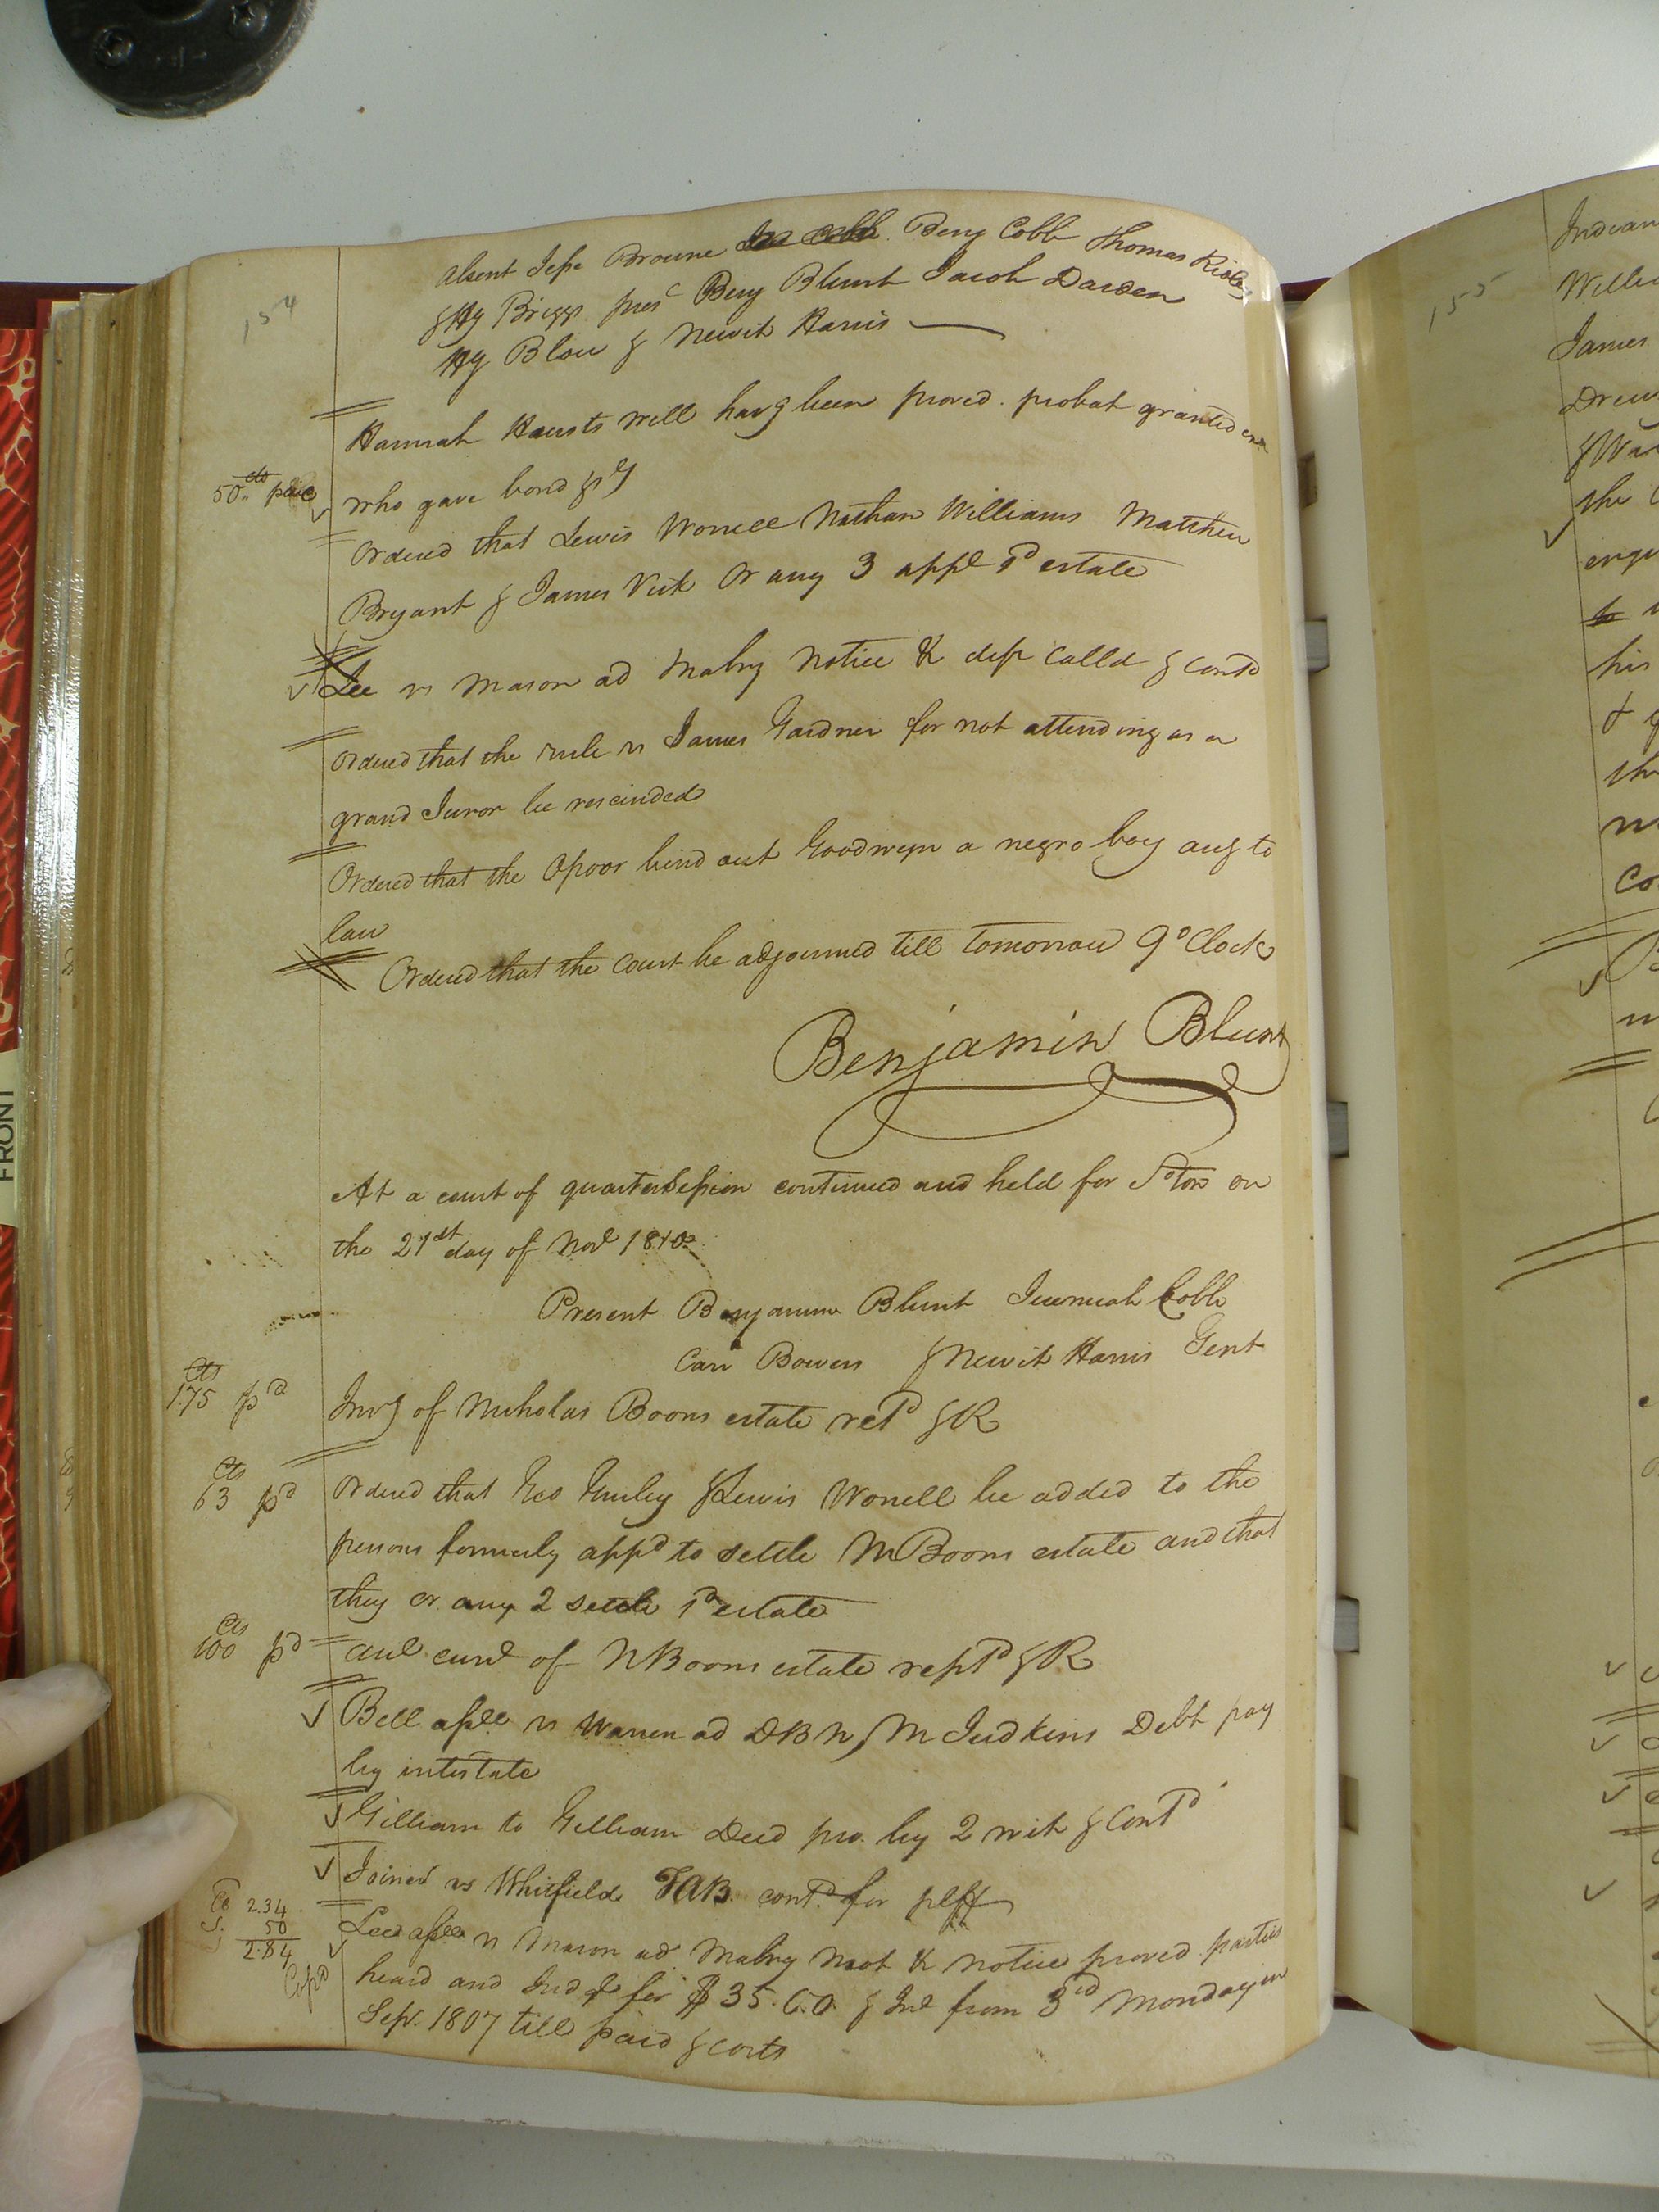 154
absent Jesse Browne Benj Cobb Thomas Ridley
& Hy Briggs pres^t Benj Blunt Jacob Darden
Hy Blow & Newit Harris
Hannah will hav^g been proved. probat granted
50 cts paid
who gave bond &c
Ordered that Lewis Worrell Nathan Williams Matthew
Bryant & James Vick or any 3 app^r s^d estate
Lee vs Mason ad Mabry notice & calld & cont^d
Ordered that the rule vs James Gardner for not attending as a
grand Juror be rescinded
Ordered that the Opoor bind out Goodwyn a negro boy acc^g to
law
Ordered that the Court be adjourned till tomorrow 9 o Clock
Benjamin Blunt
At a court of quarter Session continued and held for S^o ton on
the 21^st day of Nov^r 1810
Present Benjamin Blunt Jeremiah Cobb
Carr Bowers & Newit Harris Gent
Cts
175 p^d
Inv^y of Nicholas Booms estate ret^d & R
Cts
63 p^d
Ordered that Geo Gurley & Lewis Worrell be added to the
persons formerly app^d to settle N Booms estate and that
they or any 2 settle s^d estate
Cts
100 p^d
of N Booms estate ret^d & R
Bell assee vs Warren ad DBN, M Judkins Debt pay
by intestate
Gilliam to Gilliam Deed pro. by 2 wit & Cont^d
Joiner vs Whitfield TAB. cont^d for plff
Co 2.34
S. 50
2.84
Cop^d
Lee assee vs Mason ad Mabry & notice proved parties
heard and Judg^t for $ 35. 6. 0. & Int from 3^rd Monday in
Sep^r. 1807 till paid & costs
155
Indian
James
his